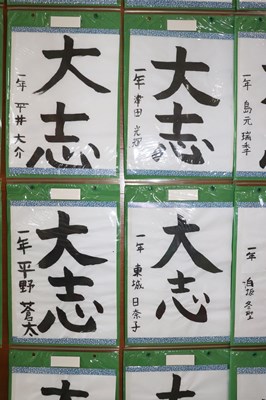 大志
一年 平井 大介
大志
一年 津田
一年 島元 瑞季
大志
一年 平野 蒼太
大志
一年 東城 日奈子
一年